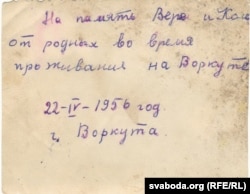 На память Вере и Коле
от родных во время
проживания на Воркуте
22-IV-1956 год.
г. Воркута.
svaboda.org (RFE/RL)